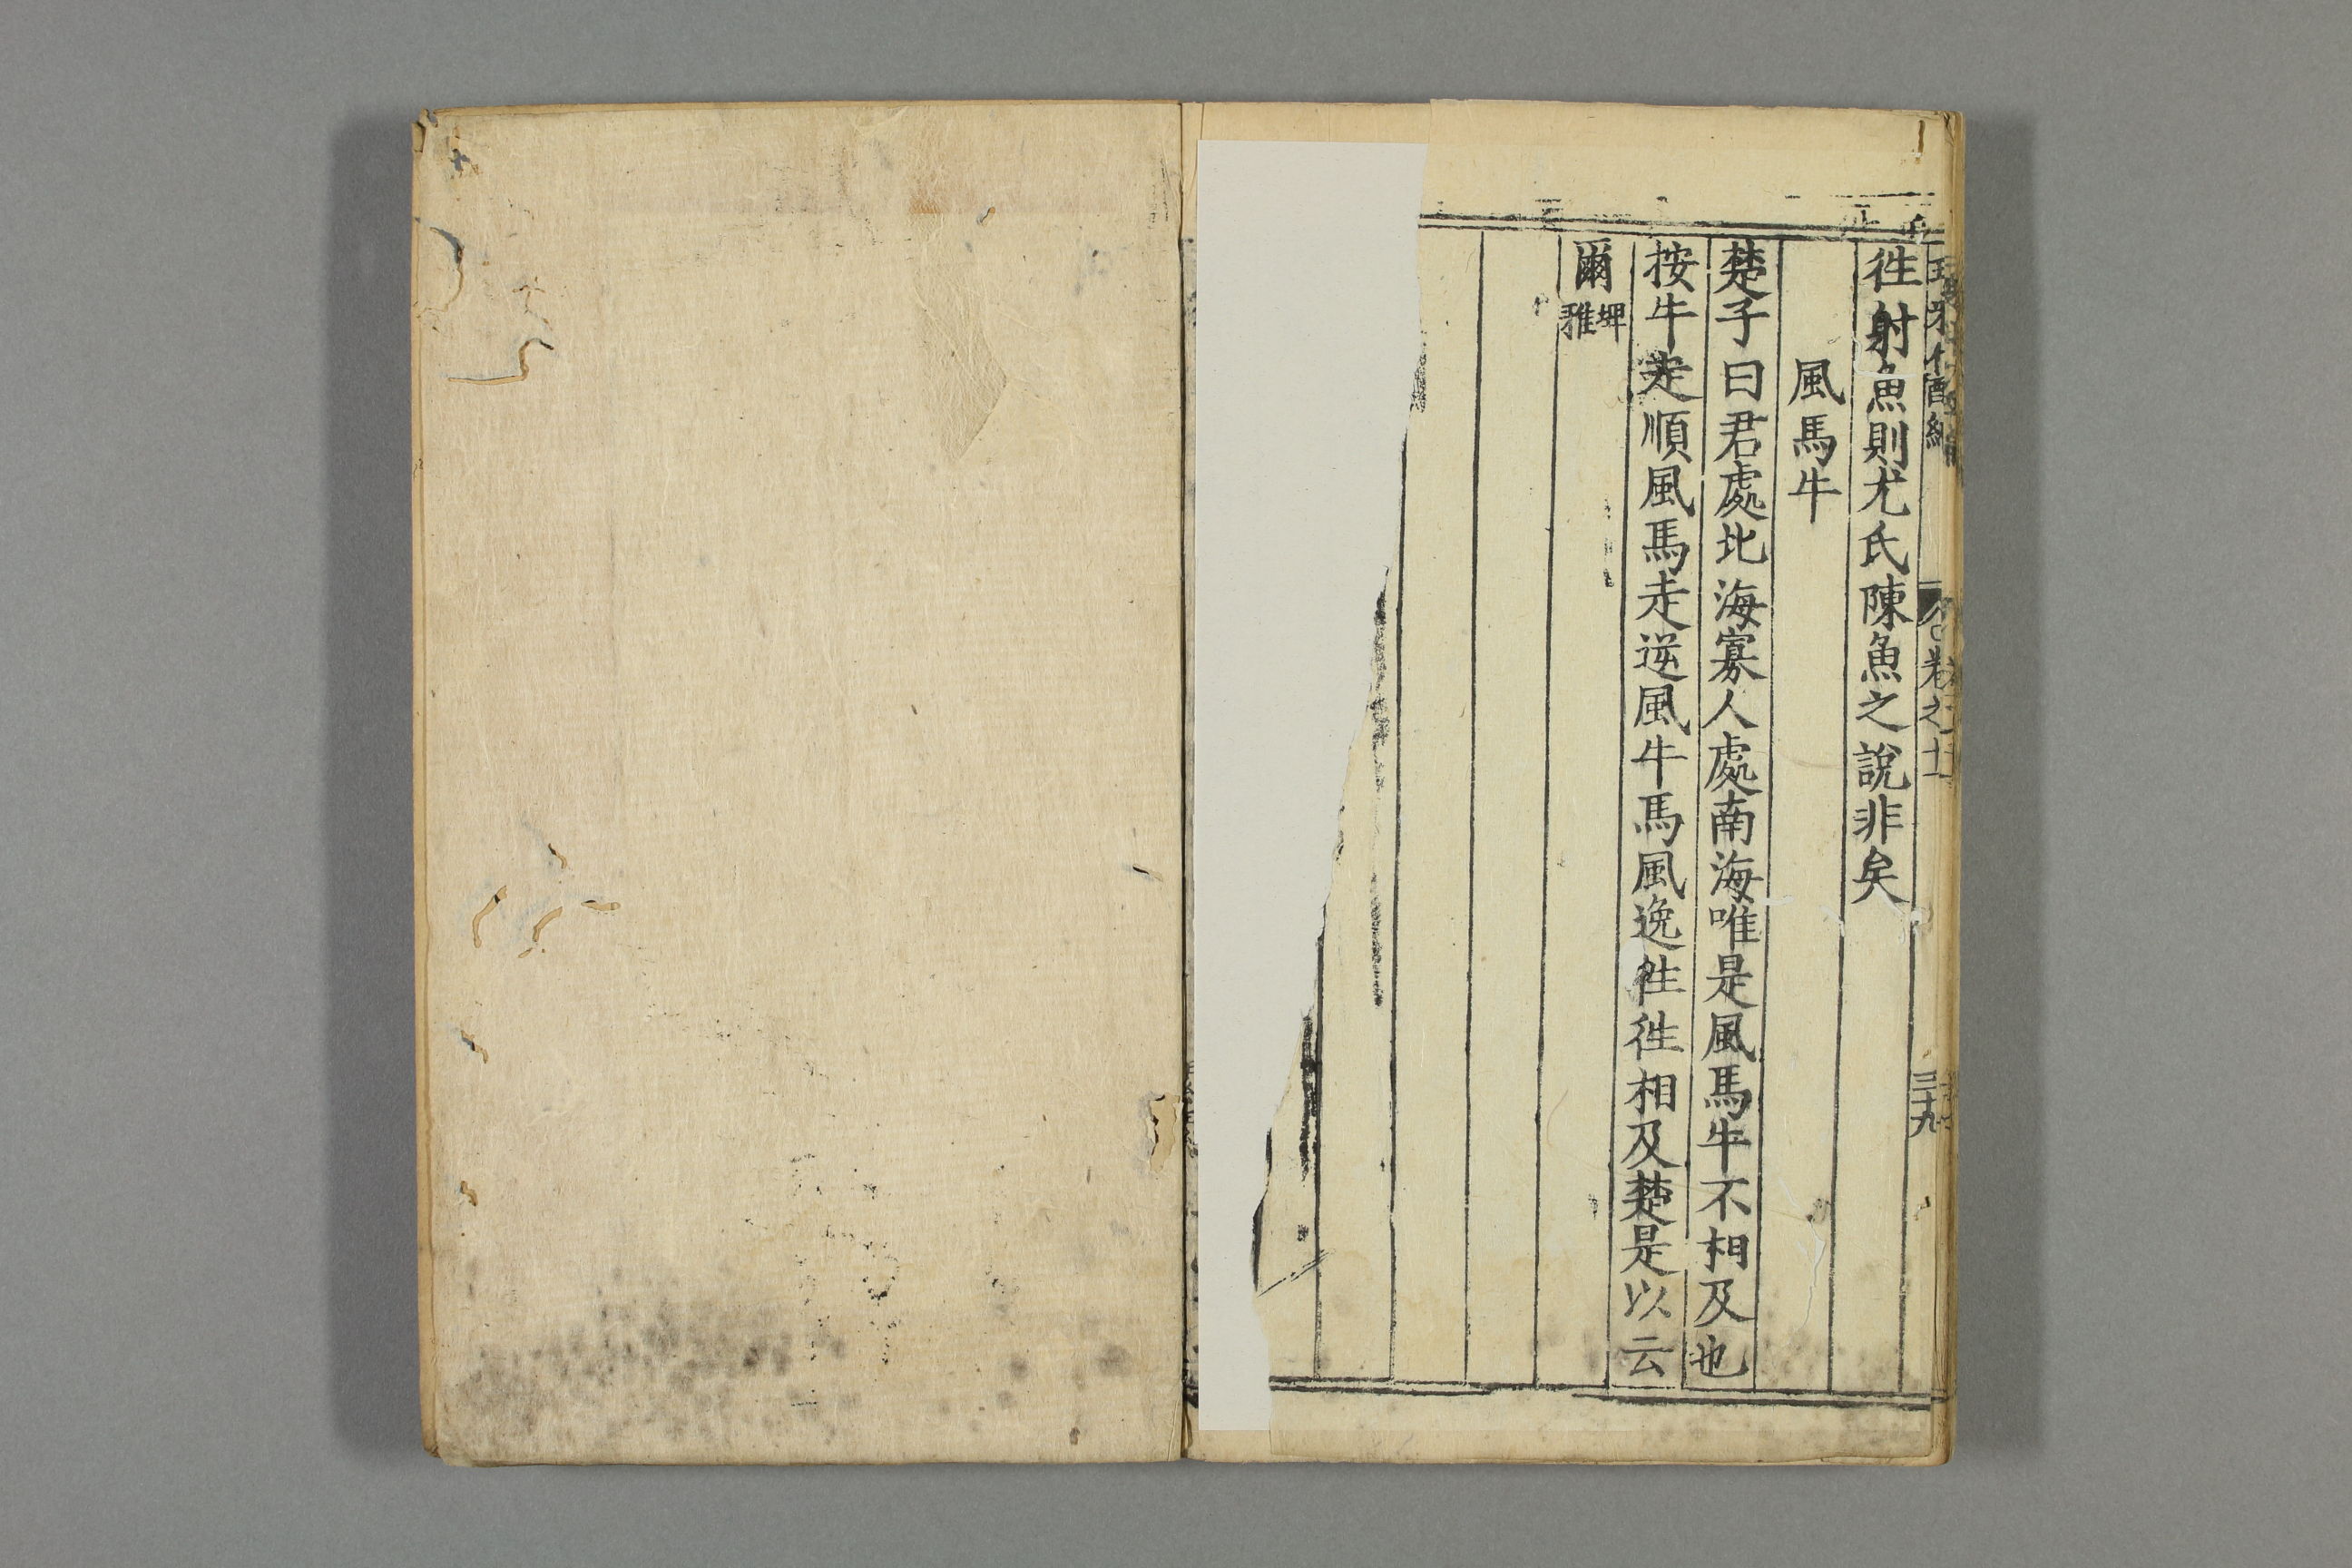 徃射魚則尤氏陳魚之說非矣
風馬牛
楚子曰君處北海寡人處南海唯是風馬牛不相及也
按牛走順風馬走逆風牛馬風逸徃徃相及楚是以云
爾埤雅
卷之十
三十九